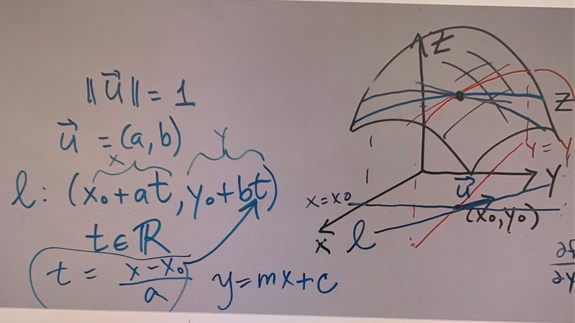 ‖u⃗‖ = 1
u⃗ = (a, b)
x y
l: (x₀+at, y₀+bt)
t∈ℝ
t = (x-x₀)/a
y=mx+c
Z
Z
y = y
Y
u⃗
x=x₀
(x₀,y₀)
x
l
∂f
∂y